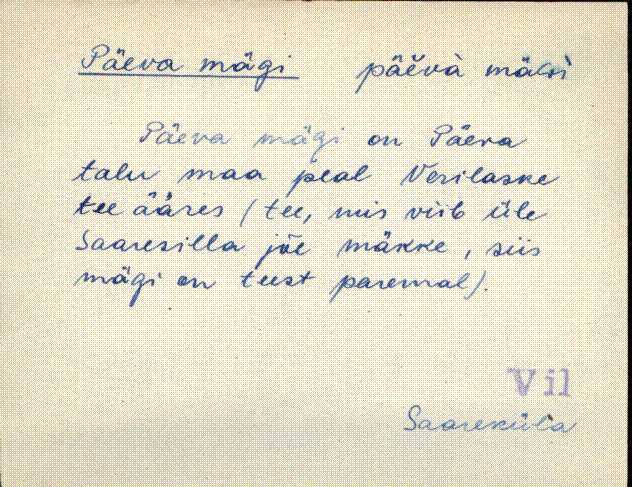 Päeva mägi päĕvà mäkì
Päeva mägi on Päeva
talu maa peal Verilaske
tee ääres (tee, mis viib üle
Saaresilla jõe mäkke, siis
mägi on teest paremal).
Vil
Saareküla